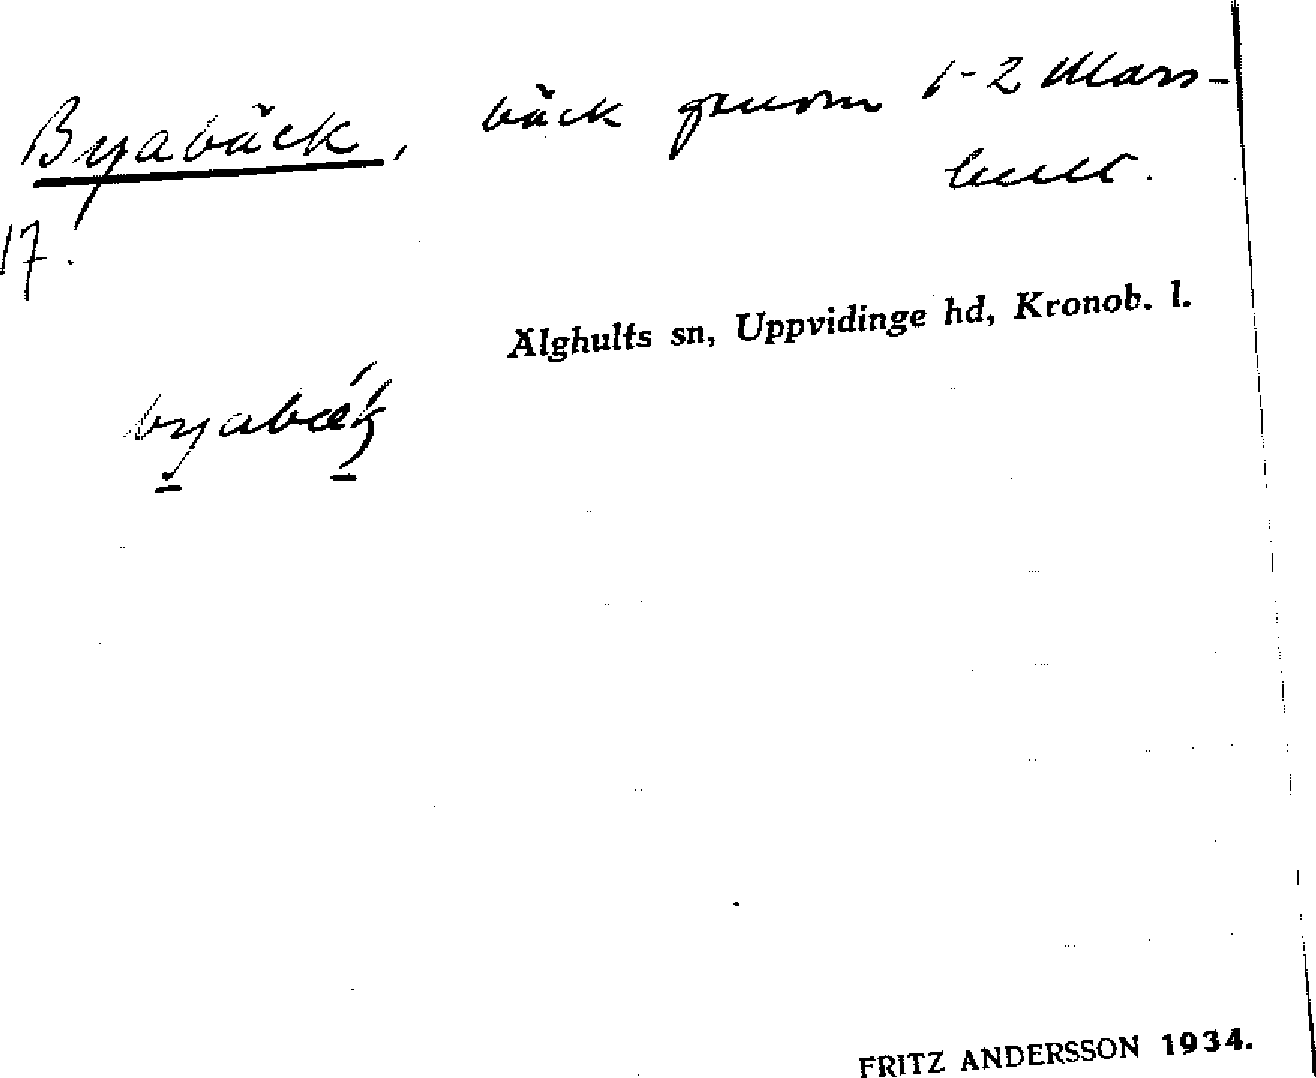 Byabäck, bäck genom 1-2 Mars-
hult.
17.
Älghults sn, Uppvidinge hd, Kronob. l.
FRITZ ANDERSSON 1934.